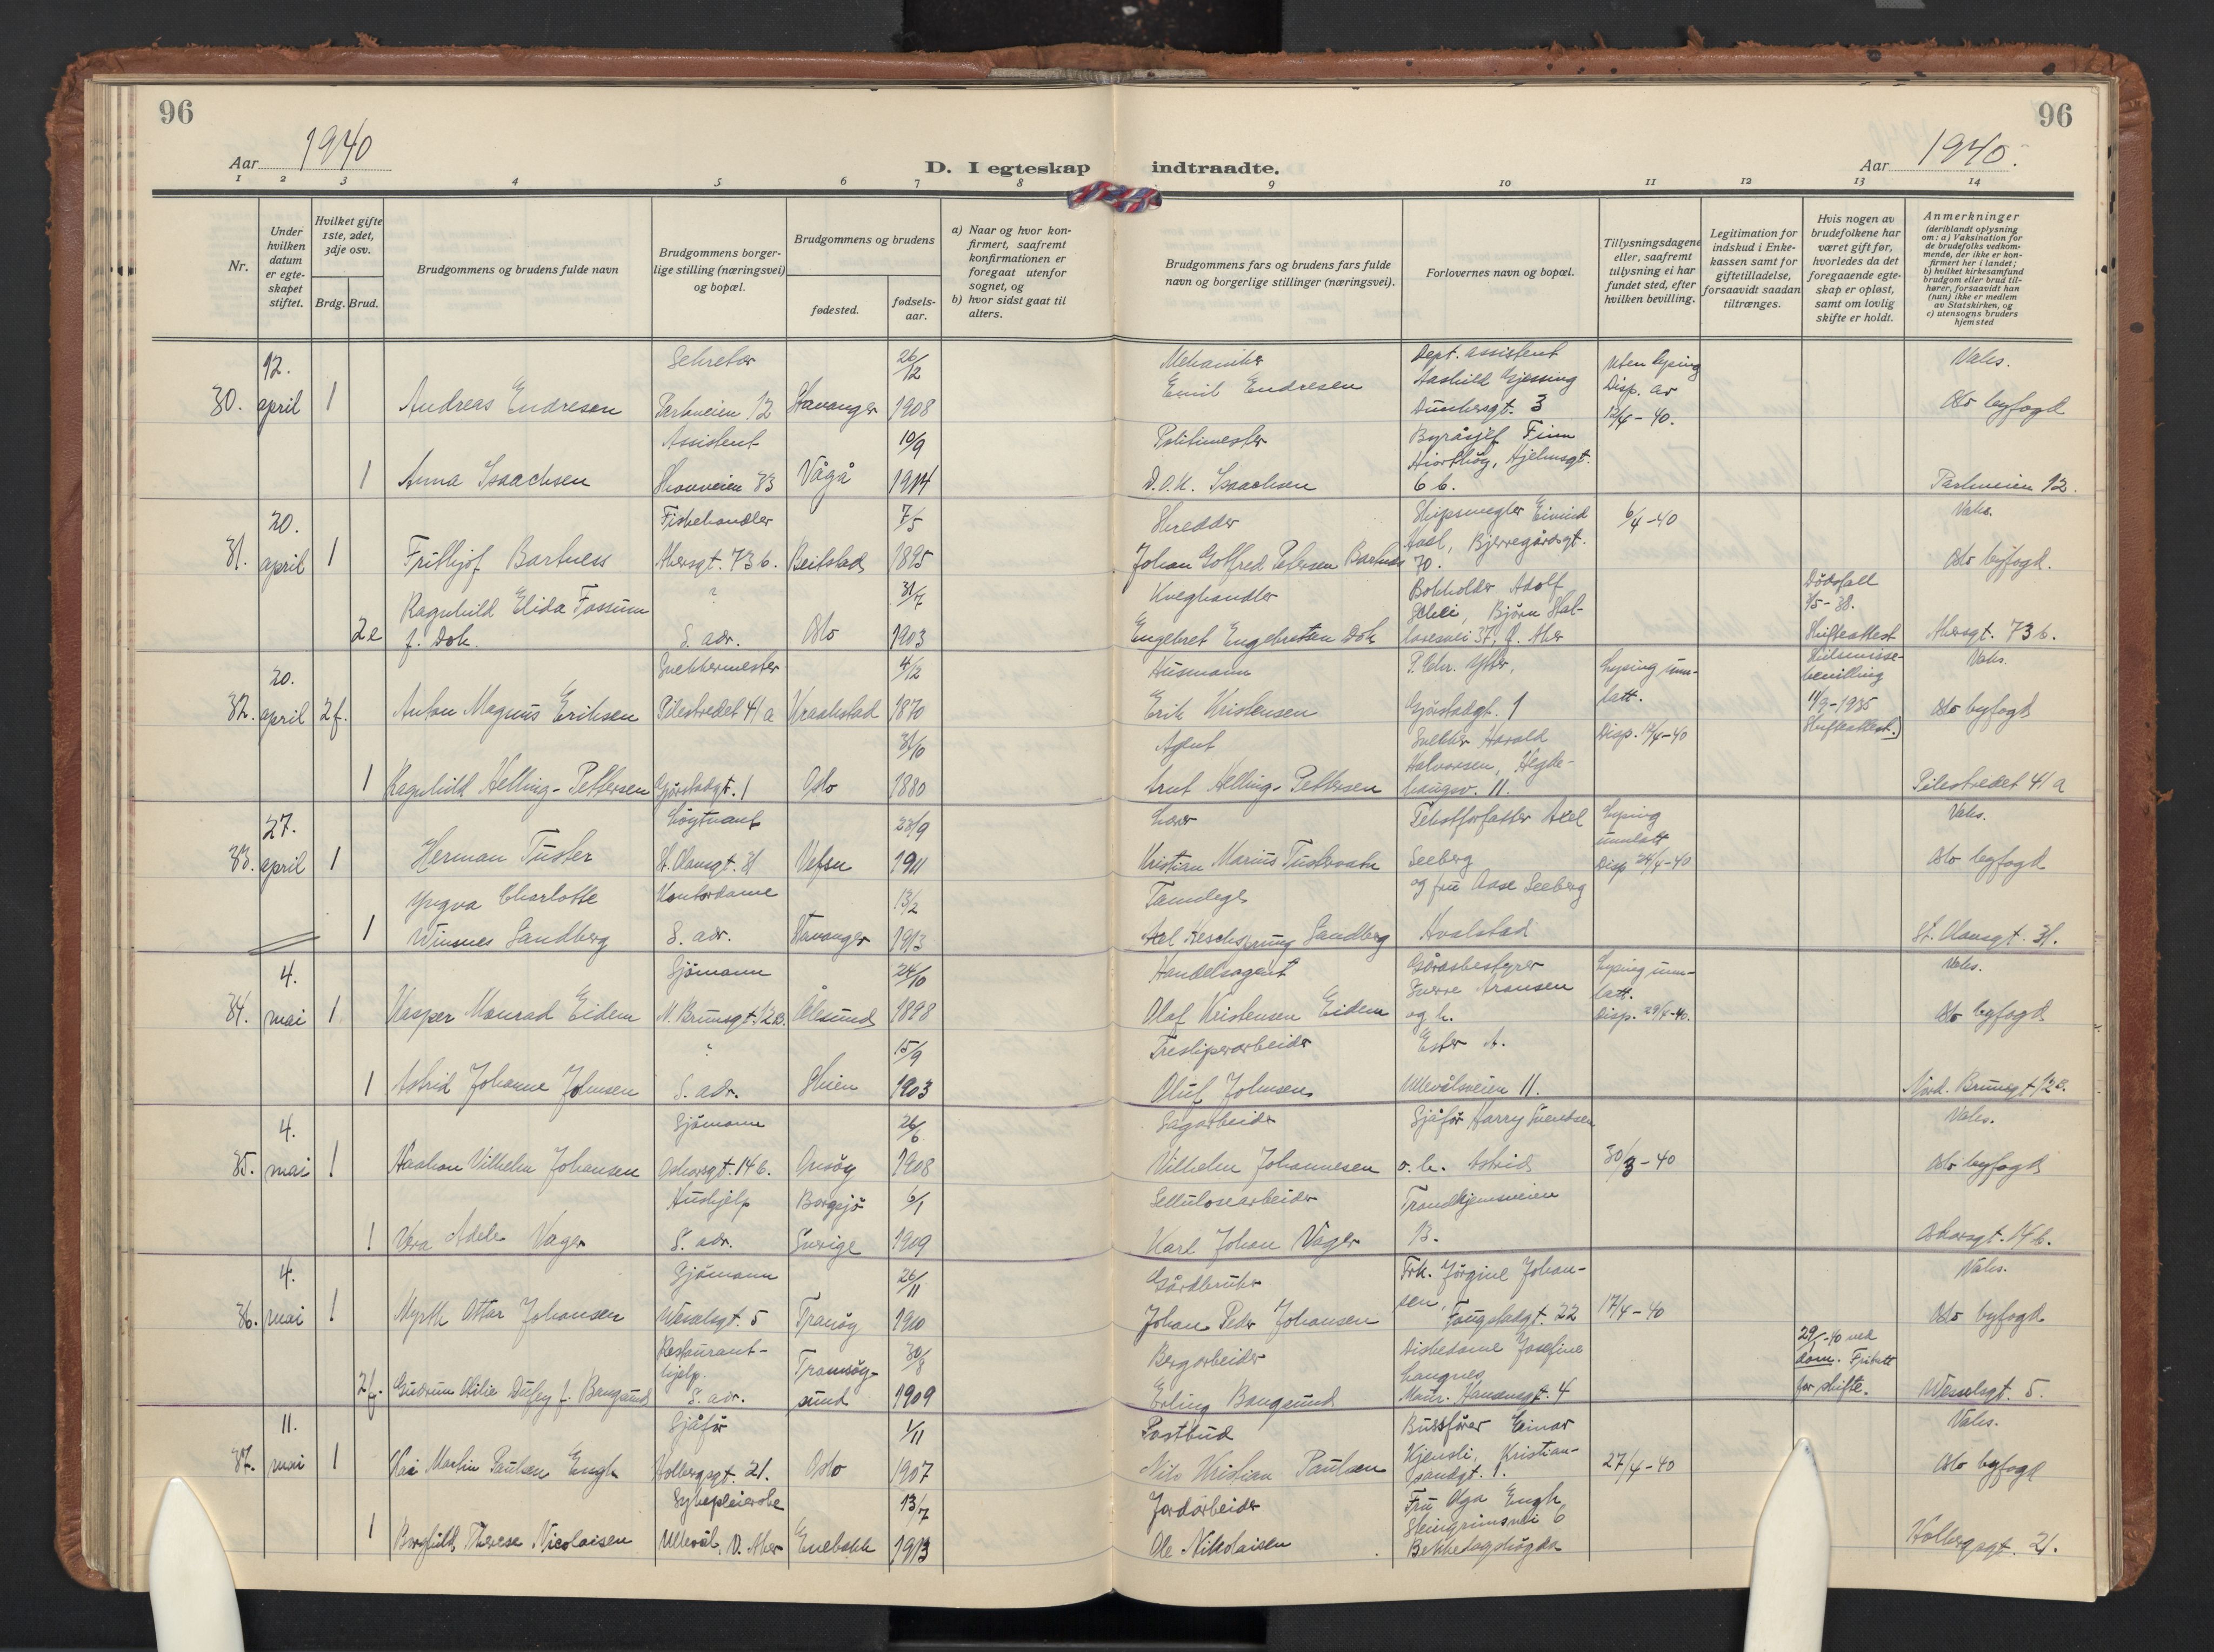 96
96
Aar 1940
D. I egteskap indtraadte.
Aar 1940.
1 2 3 4 5 6 7 8 9 10 11 12 13 14
Nr.
Under hvilken datum er egteskapet stiftet.
Hvilket gifte 1ste, 2det, 3dje osv.
Brdg. Brud.
Brudgommens og brudens fulde navn
Brudgommens borgerlige stilling (næringsvei) og bopæl.
Brudgommens og brudens
fødested.
fødselsaar.
a) Naar og hvor konfirmert, saafremt konfirmationen er foregaat utenfor sognet, og
b) hvor sidst gaat til alters.
Brudgommens fars og brudens fars fulde navn og borgerlige stillinger (næringsvei).
Forlovernes navn og bopæl.
Tillysningsdagene eller, saafremt tillysning ei har fundet sted, efter hvilken bevilling.
Legitimation for indskud i Enkekassen samt for giftetilladelse, forsaavidt saadan tiltrænges.
Hvis nogen av brudefolkene har været gift før, hvorledes da det foregaaende egteskap er opløst, samt om lovlig skifte er holdt.
Anmerkninger
(deriblandt oplysning om: a) Vaksination for de brudefolks vedkommende, der ikke er konfirmert her i landet; b) hvilket kirkesamfund brudgom eller brud tilhører, forsaavidt han (hun) ikke er medlem av Statskirken, og c) utensogns bruders hjemsted
12. Sekretær 26/12 Mekaniker Dept. assistent Uten lysing Vaks.
30. april 1 Andreas Endresen Parkveien 12 Stavanger 1908 Emil Endresen Aashild Gjessing Disp. av Oslo byfogd
Dunkersgt. 3 12/4-40.
Assistent 10/9 Politimester Byråsjef Finn
1 Anna Isaachsen Skovveien 33 Vågå 1914 D.O.K. Isaachsen Hiorthøy, Hjelmsgt. 6 b. Parkveien 12.
20. Fiskehandler 7/5 Skredder Skipsmegler Eivind 6/4-40 Vaks.
31. april 1 Frithjof Bartness Akersgt. 73 b. Beitstad 1895 Johan Gotfred Petersen Bartnes Haal, Bjerregårdsgt. 70. Oslo byfogd.
Ragnhild Elida Fossum ? 31/7 Kveghandler Bokholder Adolf Dødsfall
2e f. Dok. S. adr. Oslo 1903 Engebret Engebretsen Dok Schei, Bjørn 3/5-38. Skifteattest Akersgt. 73 b.
20. Snekkermester 4/12 Husmann P. Chr. Lysing unnlatt. bevilling Vaks.
32. april 2f. Anton Magnus Eriksen Pilestredet 41 a Kraakstad 1870 Erik Kristensen Gjørstadgt. 1 Disp. 17/4-40 11/9-1935 Skifteattest. Oslo byfogd
31/10 Agent Snekker Harald
1 Ragnhild Helling-Pettersen Gjørstadgt. 1 Oslo 1880 Arnt Helling-Pettersen Halvorsen, Hegdehaugsv. 11. Pilestredet 41 a
27. Løytnant 23/9 Lærer Tekstforfatter Axel Lysing unnlatt Vaks.
33. april 1 Herman Tuster St. Olavsgt. 31 Vefsn 1911 Kristian Marius Tustervatn Seeberg Disp 24/4-40 Oslo byfogd
Yngva Charlotte Kontordame 13/2 Tannlege og fru Aase Seeberg
1 Winsnes Sandberg S. adr. Stavanger 1913 Axel Sandberg Hvalstad St. Olavsgt. 31.
4. Sjømann 24/10 Handelsagent Gårdsbestyrer Lysing unnlatt. Vaks.
34. mai 1 Kasper Konrad Eidem N. Brunsgt. 12 B. Ålesund 1898 Olaf Kristensen Eidem Sverre Aronsen og h. Disp. 29/4-40. Oslo byfogd
? 15/9 Tresliperarbeider Ester A.
1 Astrid Johanne Johnsen S. adr. Skien 1903 Oluf Johnsen Ullevålsveien 11. Nord. Brunsgt 12 B.
4. Sjømann 26/6 Sagarbeider Sjåfør Harry Svendsen Vaks.
35. mai 1 Haakon Vilhelm Johansen Oskarsgt. 14 b. Onsøy 1908 Vilhelm Johannesen o. h. Astrid 30/3-40 Oslo byfogd
Hushjelp Borgsjö 6/1 Cellulosearbeider Trondhjemsveien
1 Vera Adele Vager S. adr. Sverige 1909 Karl Johan Vager 13. Oskarsgt. 14 b.
4. Sjømann 26/11 Gårdbruker Frk. Jørgine Johansen, Vaks.
36. mai 1 Myrth Ottar Johansen Wesselsgt. 5 Tranøy 1910 Johan Peder Johansen Fougstadgt. 22 17/4-40 Oslo byfogd
Restauranthjelp. Tromsøysund 30/8 Bergarbeider Diskedame Josefine 29/-40 ved dom. Fritatt
2f. Gudrun Otilie f. Baugsund S. adr. 1909 Erling Baugsund Langnes Maur. Hansensgt. 4 for skifte. Wesselsgt. 5.
11. Sjåfør 1/11 Postbud Bussfører Einar Vaks.
37. mai 1 Kai Martin Paulsen Engh Holbergsgt. 21. Oslo 1907 Nils Kristian Paulsen Kjensli, Kristiansandgt. 1. 27/4-40 Oslo byfogd
Sykepleierske 13/7 Jordarbeider Fru Olga Engh,
1 Borghild Therese Nicolaisen Ullevål, V. Aker Enebakk 1913 Ole Nikolaisen Steingrimsvei 6 Bekkelagshøgda Holbergsgt. 21.